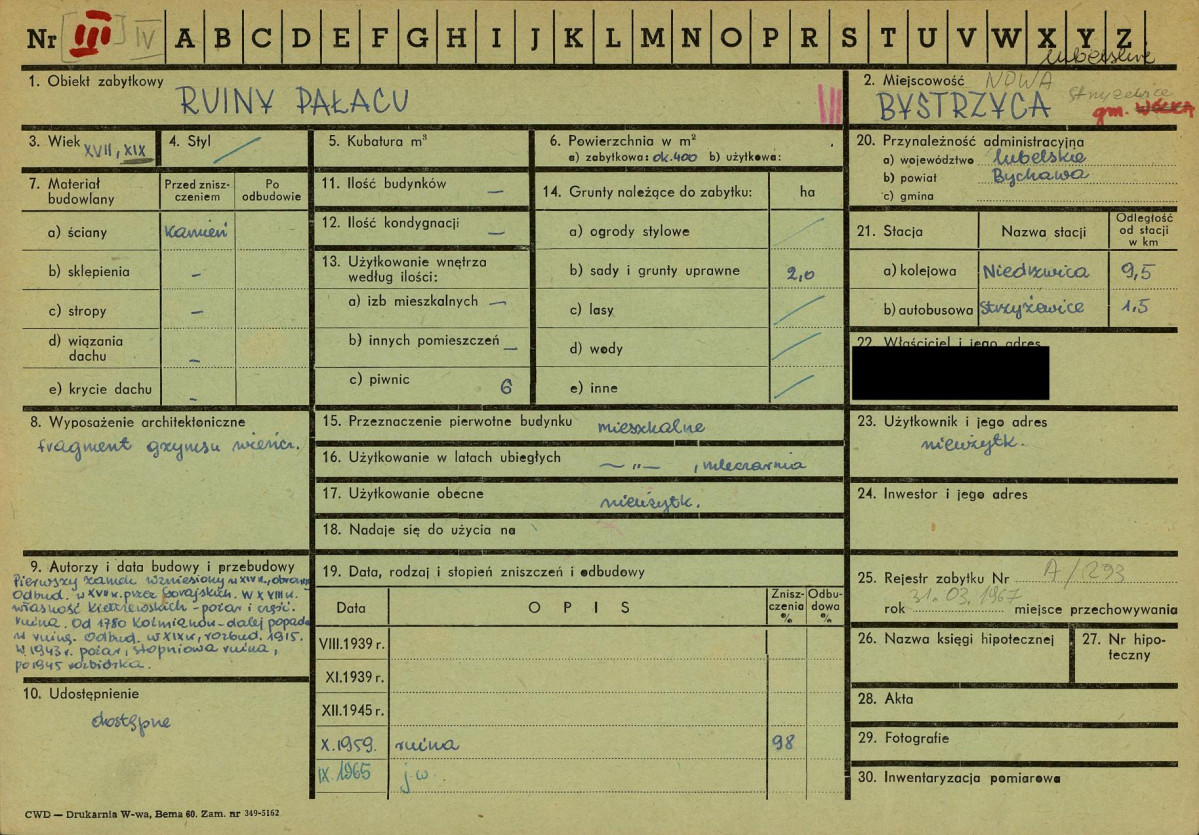 Nr [III] IV A B C D E F G H I J K L M N O P R S T U V W X Y Z
1. Obiekt zabytkowy
RUINY PAŁACU
III
lubelskie
2. Miejscowość NOWA
BYSTRZYCA
Strzyżewice
gm. WÓLKA
3. Wiek XVII, XIX
4. Styl
5. Kubatura m³
6. Powierzchnia w m²
a) zabytkowa: ok. 400 b) użytkowa:
20. Przynależność administracyjna
a) województwo lubelskie
b) powiat Bychawa
c) gmina
7. Materiał budowlany
Przed zniszczeniem
Po odbudowie
a) ściany kamień
b) sklepienia –
c) stropy –
d) wiązania dachu –
e) krycie dachu –
11. Ilość budynków –
12. Ilość kondygnacji –
13. Użytkowanie wnętrza według ilości:
a) izb mieszkalnych –
b) innych pomieszczeń –
c) piwnic 6
14. Grunty należące do zabytku: ha
a) ogrody stylowe
b) sady i grunty uprawne 2,0
c) lasy
d) wody
e) inne
21. Stacja Nazwa stacji Odległość od stacji w km
a) kolejowa Niedrzwica 9,5
b) autobusowa Strzyżewice 1,5
22. Właściciel i jego adres
8. Wyposażenie architektoniczne
fragment gzymsu wieńcz.
15. Przeznaczenie pierwotne budynku mieszkalne
16. Użytkowanie w latach ubiegłych — „ — , mleczarnia
17. Użytkowanie obecne nieużytk.
18. Nadaje się do użycia na
23. Użytkownik i jego adres
nieużytk.
24. Inwestor i jego adres
9. Autorzy i data budowy i przebudowy
Pierwszy zamek wzniesiony w XIV w., obronny
Odbud. w XVII w. przez Gorajskich. W XVIII w.
własność Kiełczewskich - pożar i częśc.
ruina. Od 1780 Koźmianów - dalej popada
w ruinę. Odbud. w XIX w., rozbud. 1915.
W 1943 r. pożar, stopniowa ruina,
po 1945 rozbiórka.
10. Udostępnienie
dostępne
19. Data, rodzaj i stopień zniszczeń i odbudowy
Data OPIS Zniszczenia % Odbudowa %
VIII.1939 r.
XI.1939 r.
XII.1945 r.
X.1959. ruina 98
IX 1965 j.w.
25. Rejestr zabytku Nr A/293
rok 31.03.1967 miejsce przechowywania
26. Nazwa księgi hipotecznej
27. Nr hipoteczny
28. Akta
29. Fotografie
30. Inwentaryzacja pomiarowa
CWD — Drukarnia W-wa, Bema 60. Zam. nr 349-5162